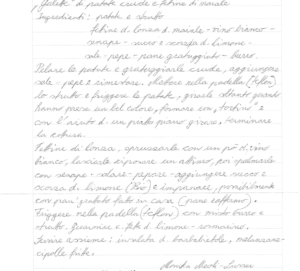 "Galette" di patate crude e fettine di maiale
Ingredienti: patate e strutto
fettine di lonza di maiale - vino bianco -
senape - succo e scorza di limone -
sale - pepe - pane grattugiato - burro.
Pelare le patate e grattugiarle crude, aggiungere
sale, pepe e amalgamare, mettere nella padella (teflon)
lo strutto e friggere le patate, girarle soltanto quando
hanno preso un bel colore, formare un "tortino" e
con l'aiuto di un piatto piano girare, terminare
la cottura.
Fettine di lonza, spruzzarle con un pò di vino
bianco, lasciarle riposare un attimo, poi spalmarle
con senape - salare - pepare - aggiungere succo e
scorza di limone (Bio) e impanare, possibilmente
con pan grattato fatto in casa (pane raffermo).
Friggere nella padella (teflon) con molto burro e
strutto, guarnire c. fette di limone - rosmarino.
Servire assieme: insalata di barbabietole, melanzane -
cipolle fritte.